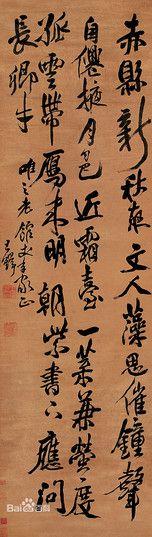 赤縣新秋夜文人藻思催鐘聲
自僊掖月色近霜臺一葉兼螢度
孤雲帶雁來明朝紫書下應問
長卿才
王鐸
Baidu百科